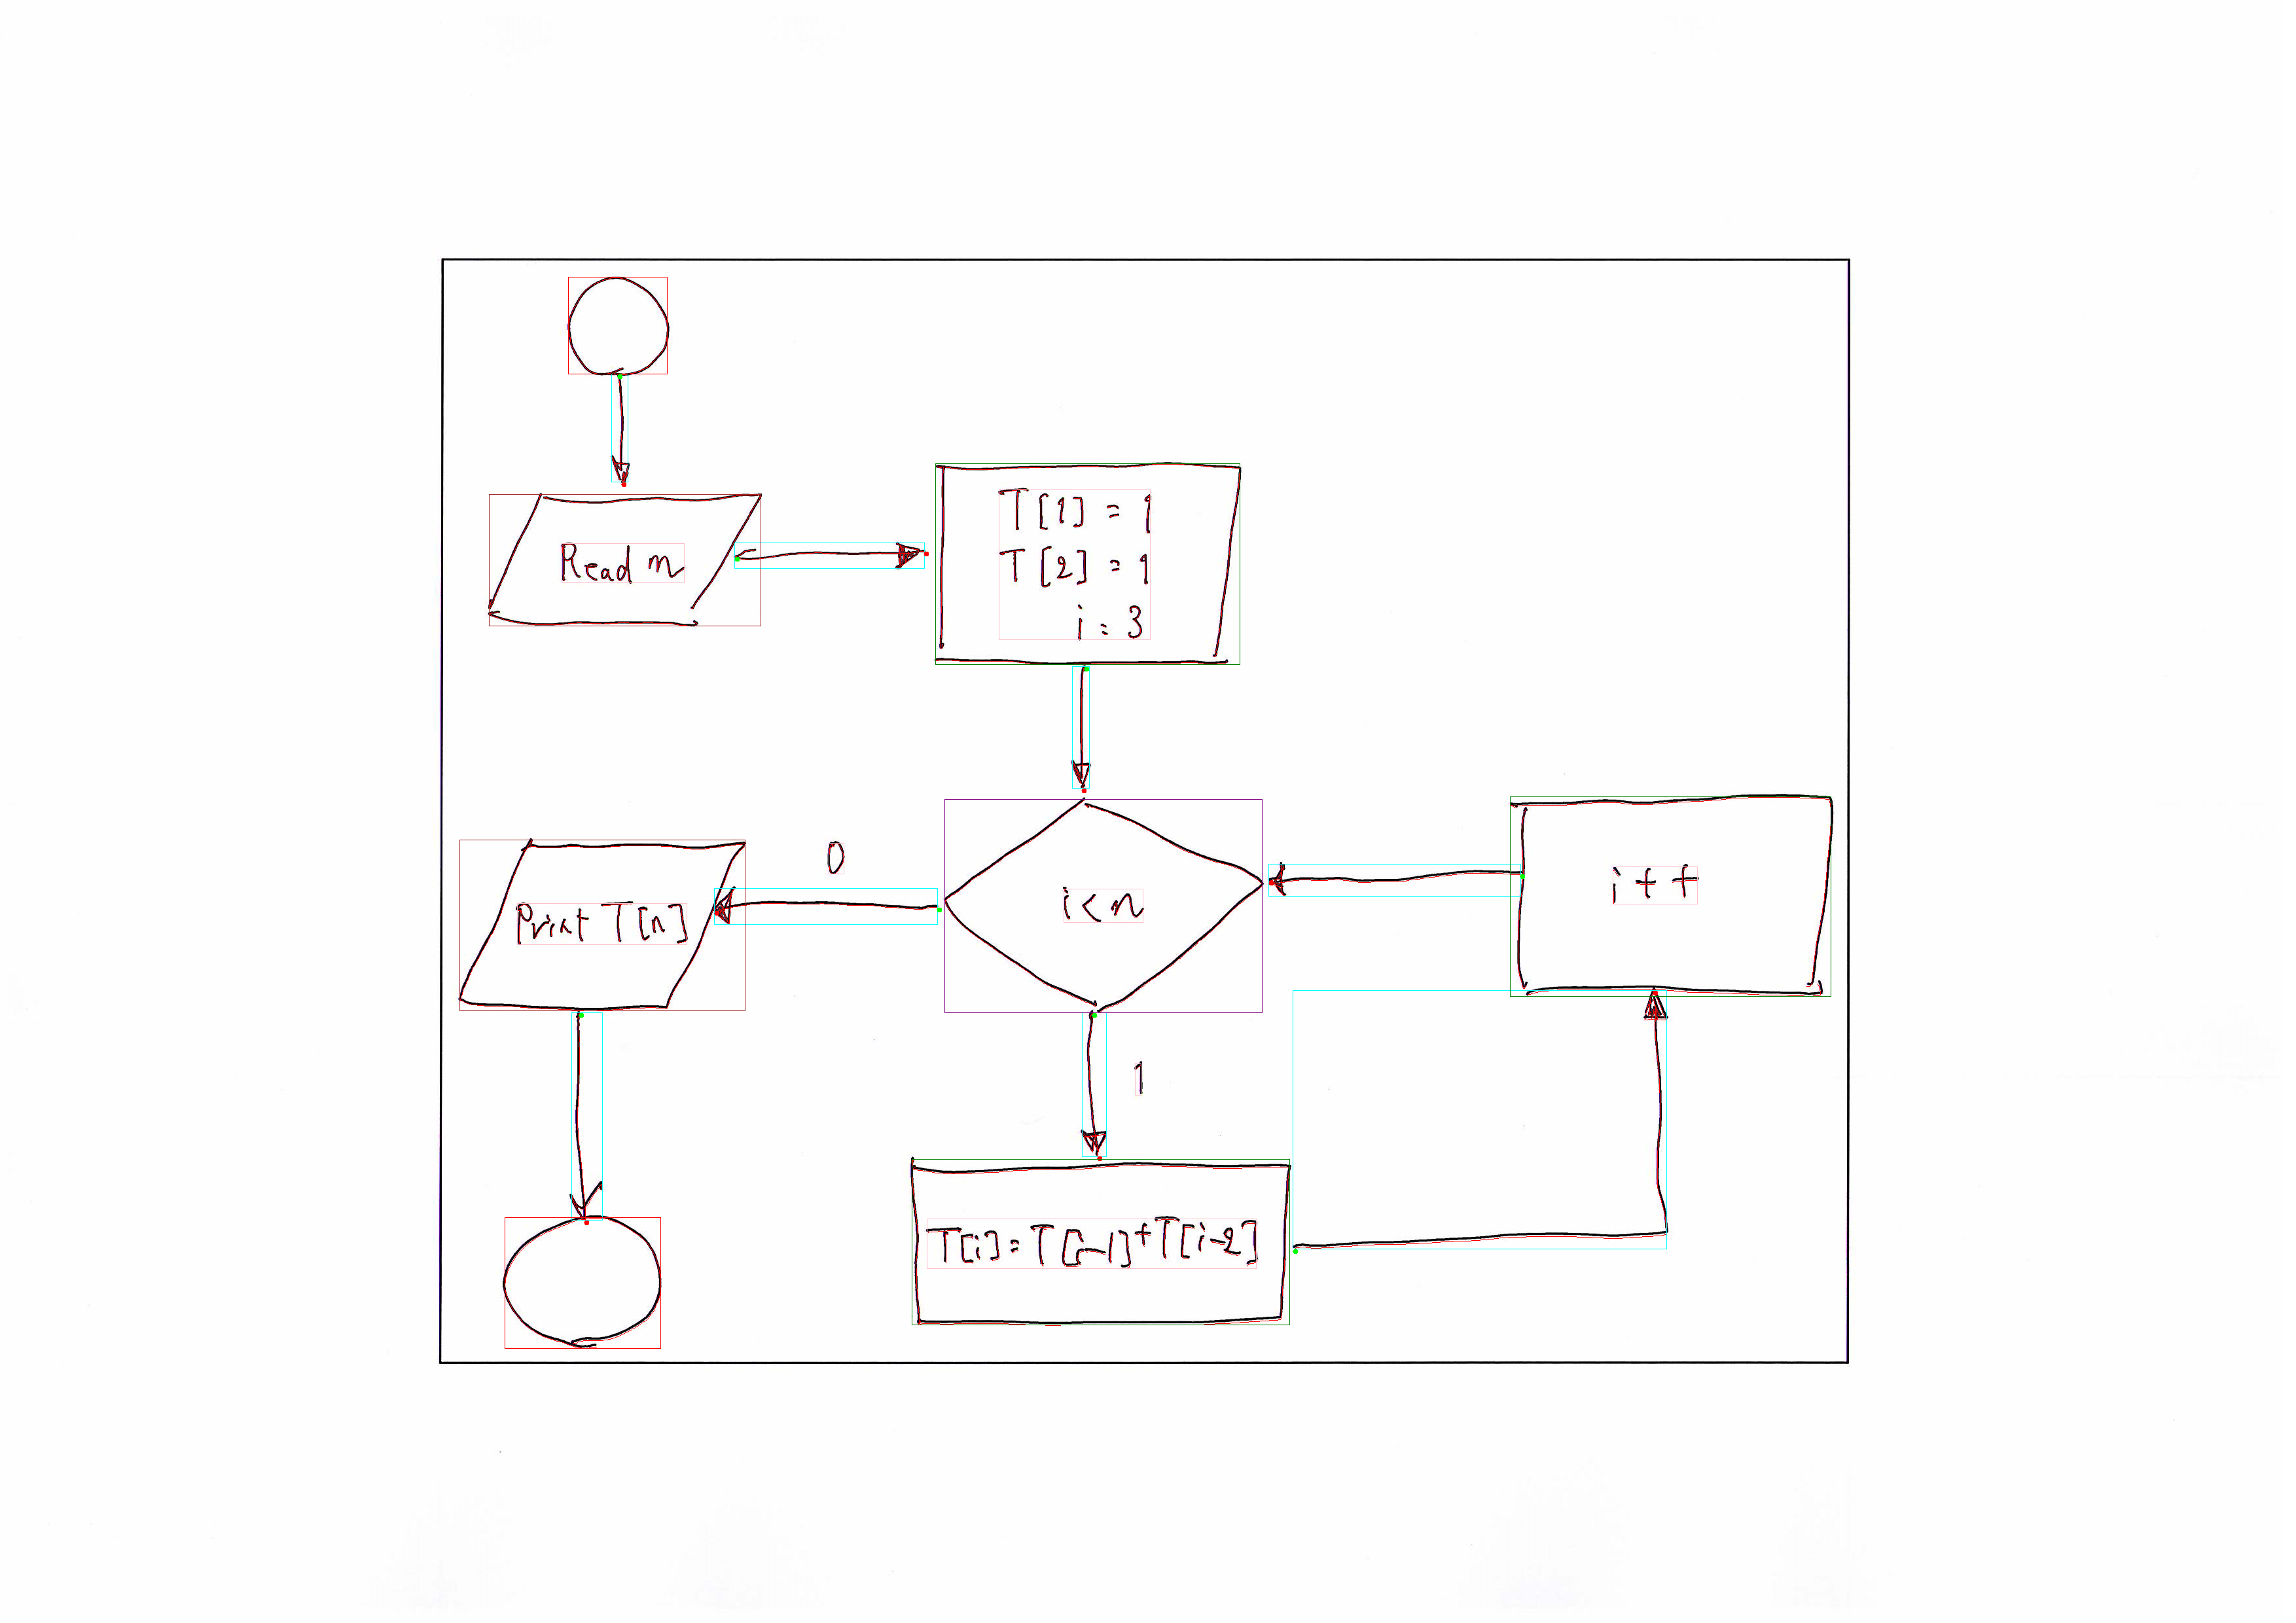 Read n
T[1] = 1
T[2] = 1
i = 3
0
i<n
i++
Print T[n]
1
T[i]=T[i-1]+T[i-2]